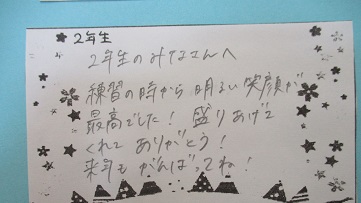 2年生
2年生のみなさんへ
練習の時から明るい笑顔が
最高でした！盛りあげて
くれてありがとう！
来年もがんばってね！